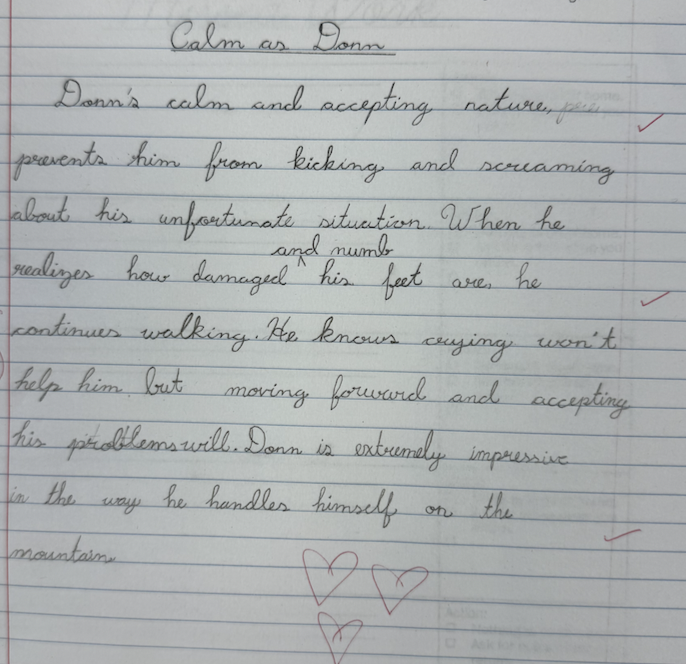 Calm as Donn
Donn's calm and accepting nature,
prevents him from kicking and screaming
about his unfortunate situation. When he
and numb
realizes how damaged ^ his feet are, he
continues walking. He knows crying won't
help him but moving forward and accepting
his problems will. Donn is extremely impressive
in the way he handles himself on the
mountain